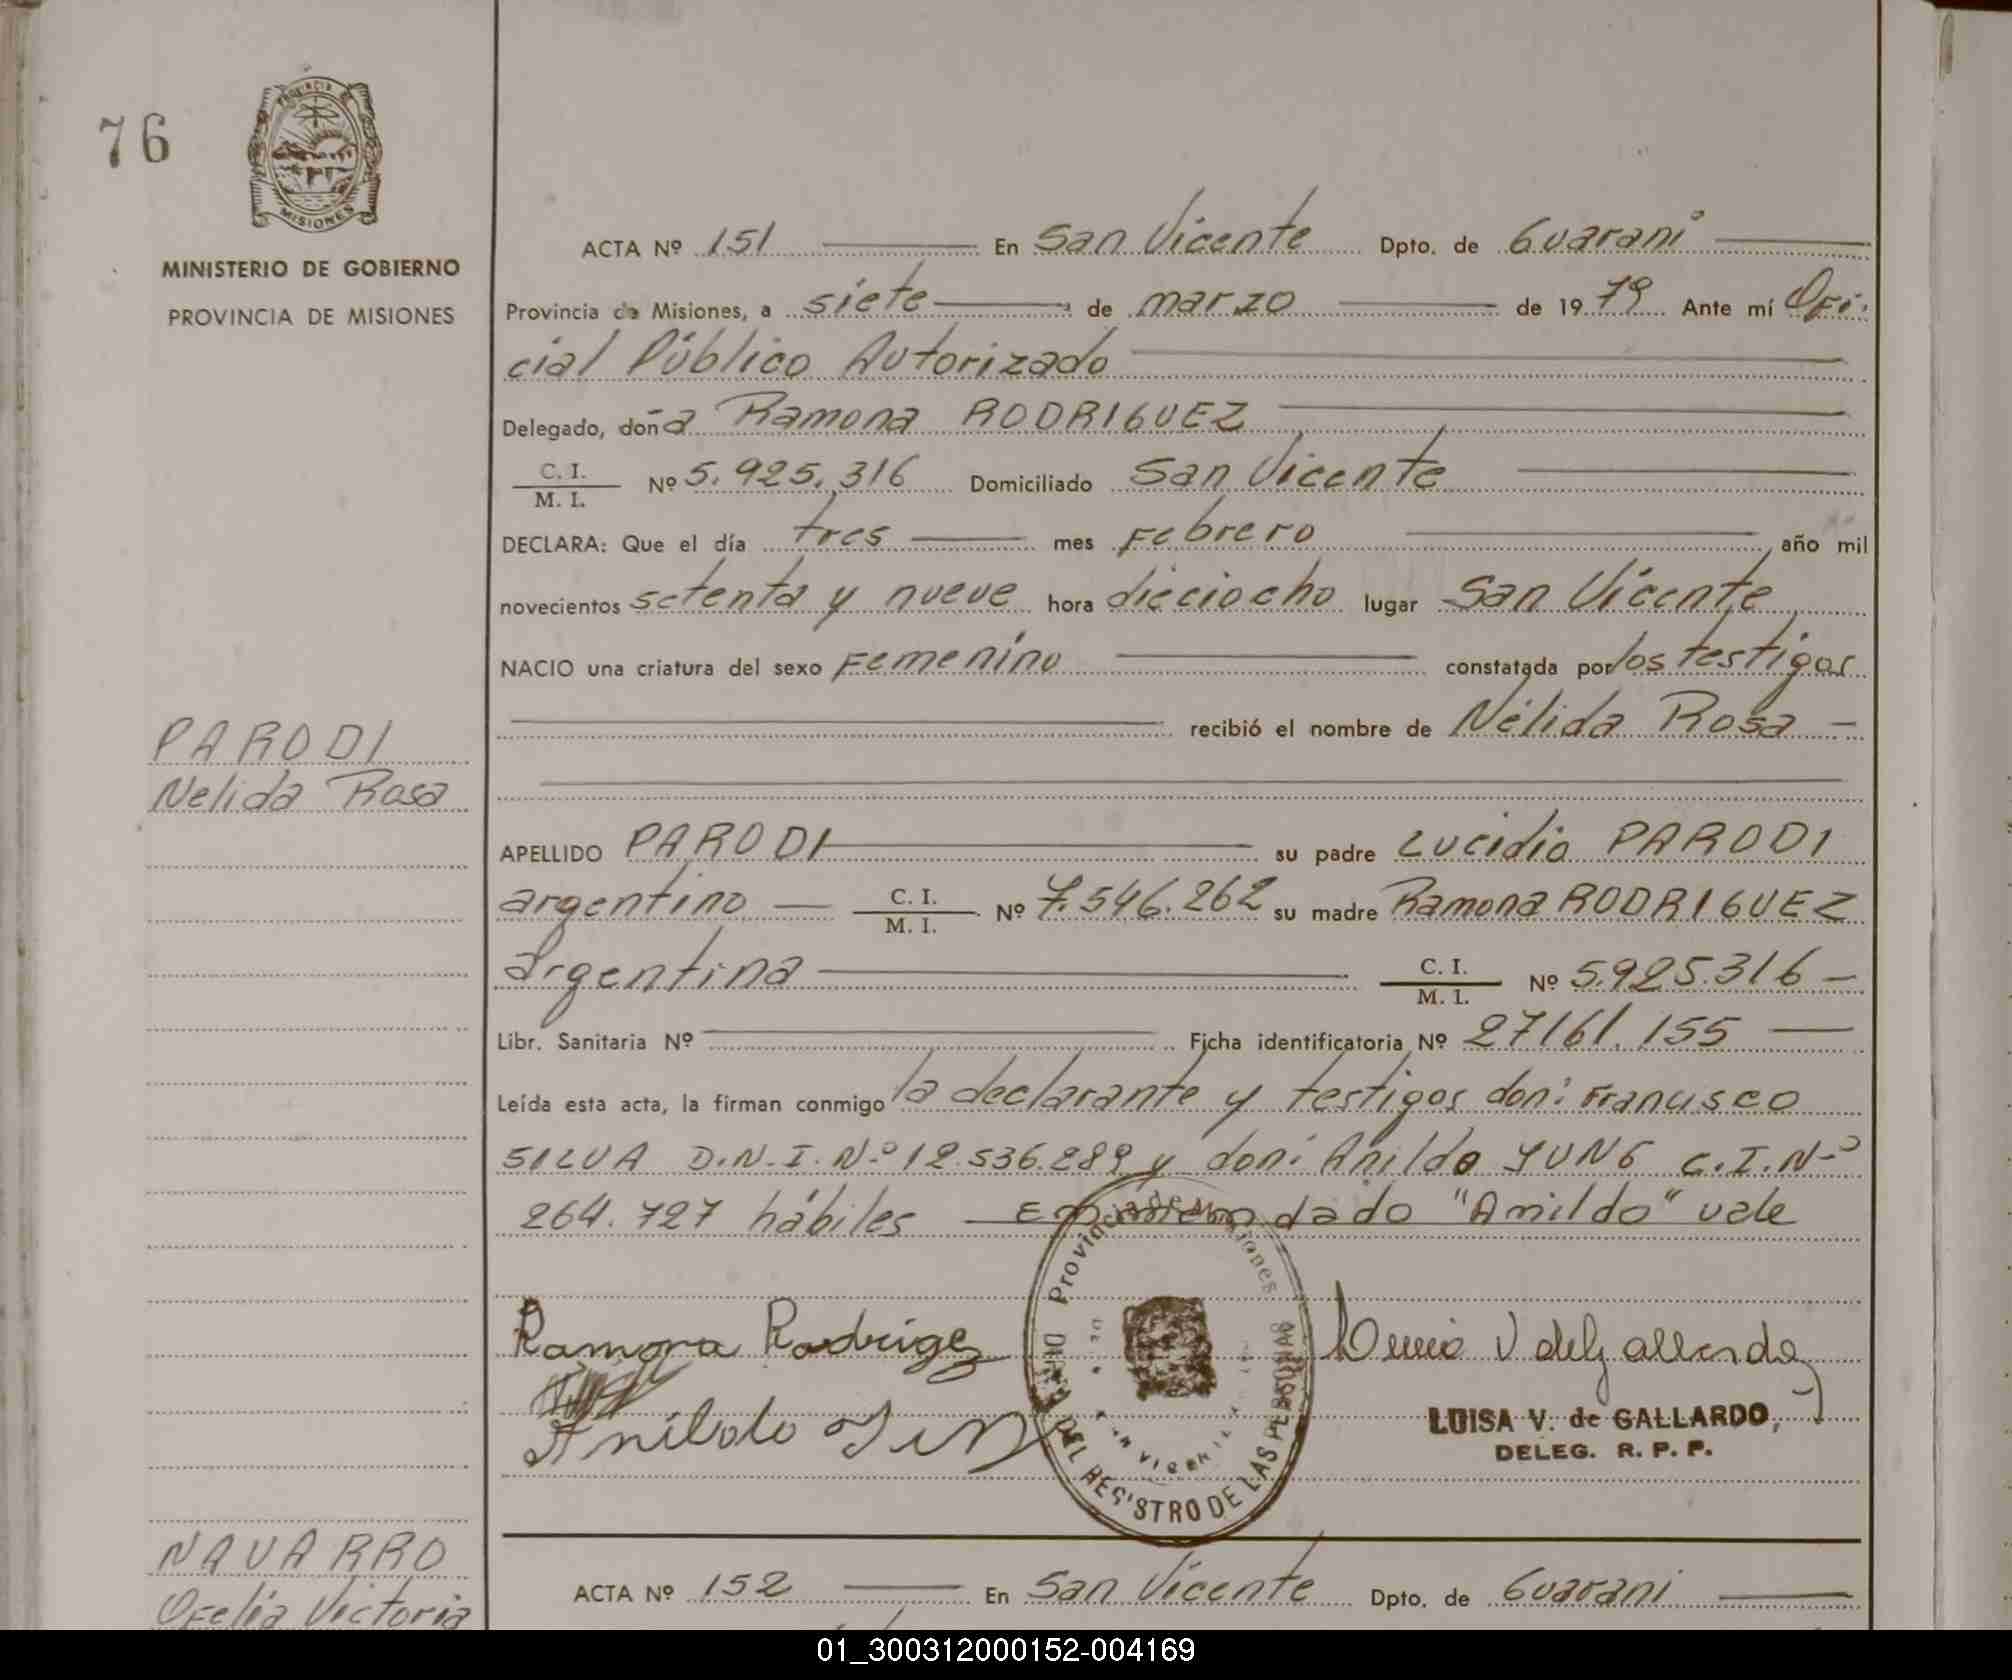 76
PROVINCIA DE
MISIONES
MINISTERIO DE GOBIERNO
PROVINCIA DE MISIONES
ACTA Nº 151 En San Vicente Dpto. de Guaraní
Provincia de Misiones, a siete de marzo de 1979 Ante mí Ofi-
cial Público Autorizado
Delegado, doña Ramona RODRIGUEZ
C. I.
M. I. Nº 5.925.316 Domiciliado San Vicente
DECLARA: Que el día tres mes Febrero año mil
novecientos setenta y nueve hora dieciocho lugar San Vicente
NACIO una criatura del sexo Femenino constatada por los testigos
recibió el nombre de Nélida Rosa
PARODI
Nelida Rosa
APELLIDO PARODI su padre Lucidio PARODI
argentino C. I.
M. I. Nº 7.546.262 su madre Ramona RODRIGUEZ
argentina C. I.
M. I. Nº 5.925.316
Libr. Sanitaria Nº Ficha identificatoria Nº 27161.155
Leída esta acta, la firman conmigo la declarante y testigos don: Francisco
SILVA D.N.I. Nº 12.536.289 y don: Anildo YUNG C.I. Nº
264.727 hábiles Enmendado "Anildo" vale
Provincia de Misiones
DEL REGISTRO DE LAS PERSONAS
SAN VICENTE
Ramona Rodrigez
Anildo
V de Gallardo
LUISA V. de GALLARDO,
DELEG. R. P. P.
NAVARRO
Ofelia Victoria
ACTA Nº 152 En San Vicente Dpto. de Guarani
01_300312000152-004169